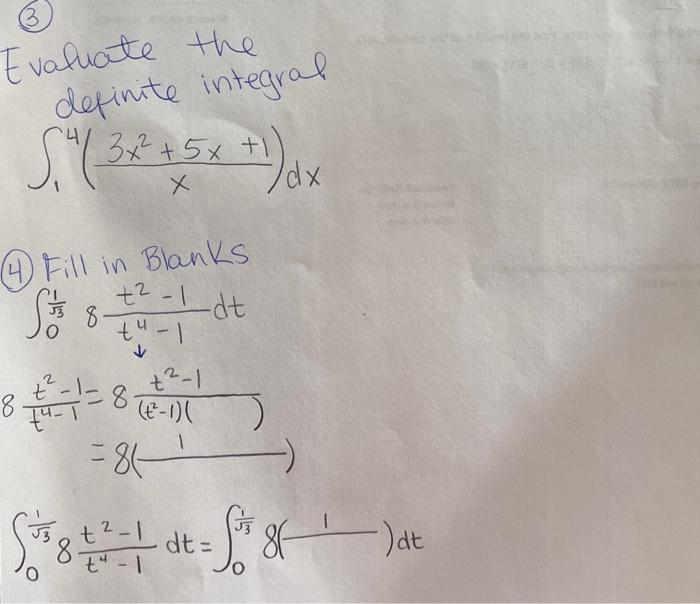 ③
Evaluate the
definite integral
∫₁⁴ ( (3x² + 5x + 1) / x ) dx
④ Fill in Blanks
∫₀^(1/√3) 8 (t² - 1)/(t⁴ - 1) dt
↓
8 (t² - 1)/(t⁴ - 1) = 8 (t² - 1)/((t² - 1)(      ))
= 8( 1/      )
∫₀^(1/√3) 8 (t² - 1)/(t⁴ - 1) dt = ∫₀^(1/√3) 8( 1/      ) dt